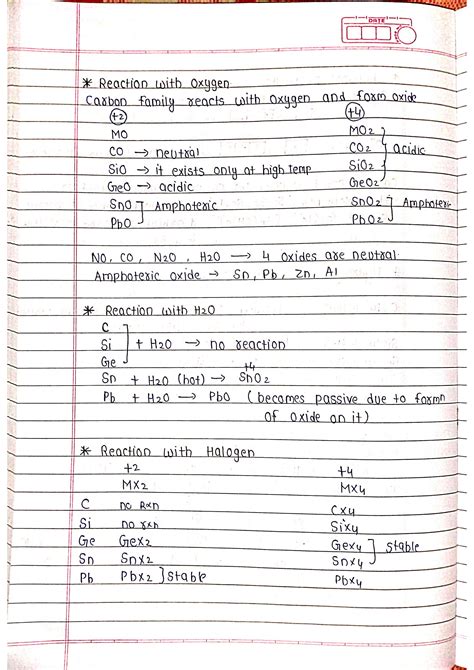 DATE
* Reaction with Oxygen
Carbon family reacts with oxygen and form oxide
+2 +4
MO MO2
CO → neutral CO2 ] acidic
SiO → it exists only at high Temp SiO2
GeO → acidic GeO2
SnO ] Amphoteric SnO2 ] Amphoteric
PbO PbO2
NO, CO, N2O, H2O → 4 oxides are neutral
Amphoteric oxide → Sn, Pb, Zn, Al
* Reaction with H2O
C
Si ] + H2O → no reaction
Ge
+4
Sn + H2O (hot) → SnO2
Pb + H2O → PbO ( becomes passive due to formn
of oxide on it)
* Reaction with Halogen
+2 +4
MX2 MX4
C no Rxn CX4
Si no rxn SiX4
Ge GeX2 GeX4 ] stable
Sn SnX2 SnX4
Pb PbX2 ] stable PbX4